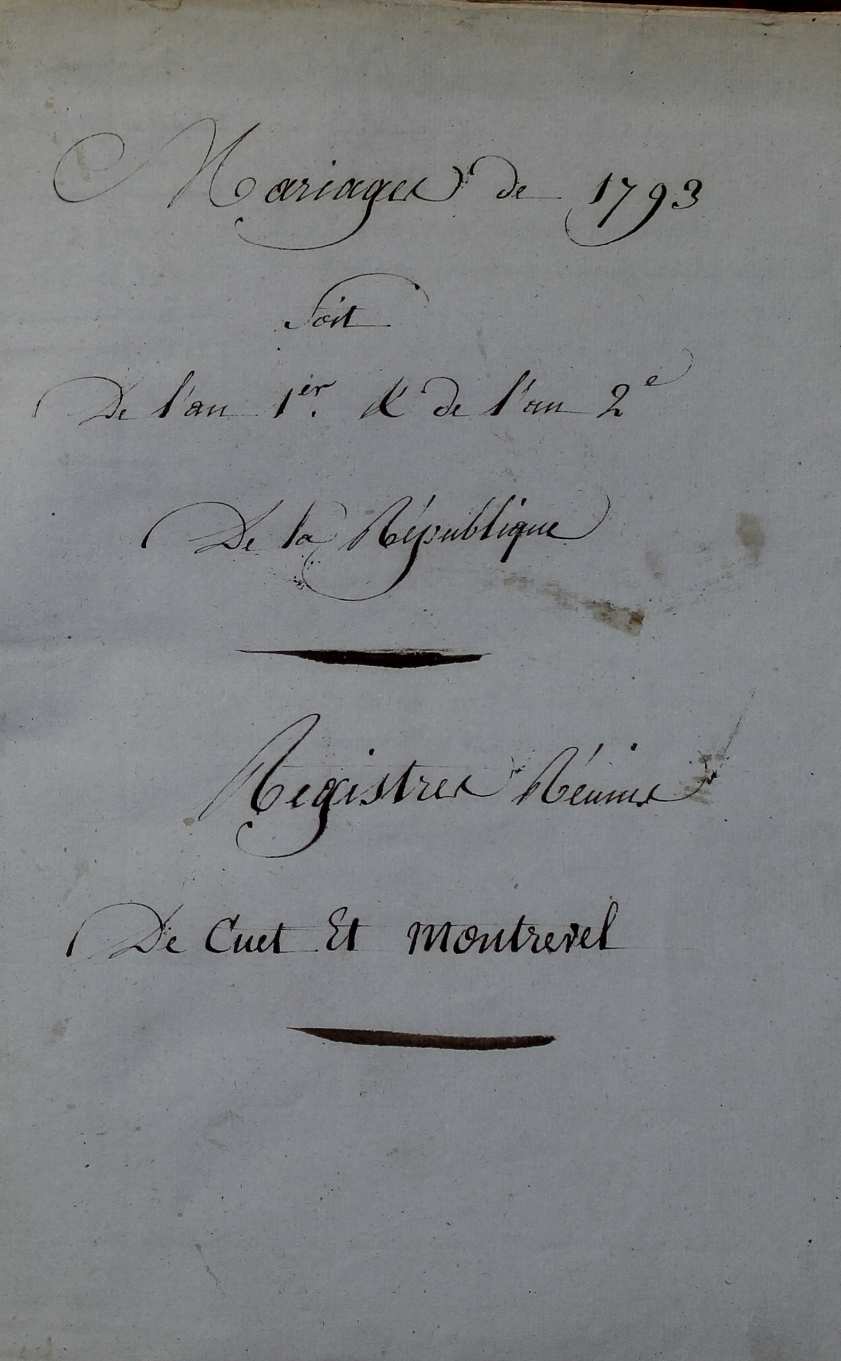 Mariages de 1793
Soit
De l'an 1er. & de l'an 2e
De la République
Registres Réunis
De Cuet Et Montrevel